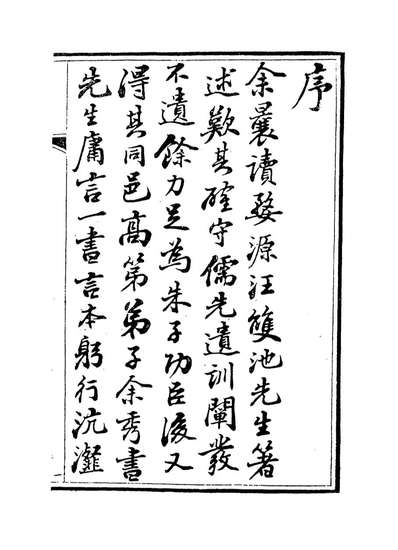 序
余曩讀婺源汪雙池先生著
述歎其確守儒先遺訓闡發
不遺餘力足為朱子功臣後又
得其同邑高第弟子余秀書
先生庸言一書言本躬行沆瀣